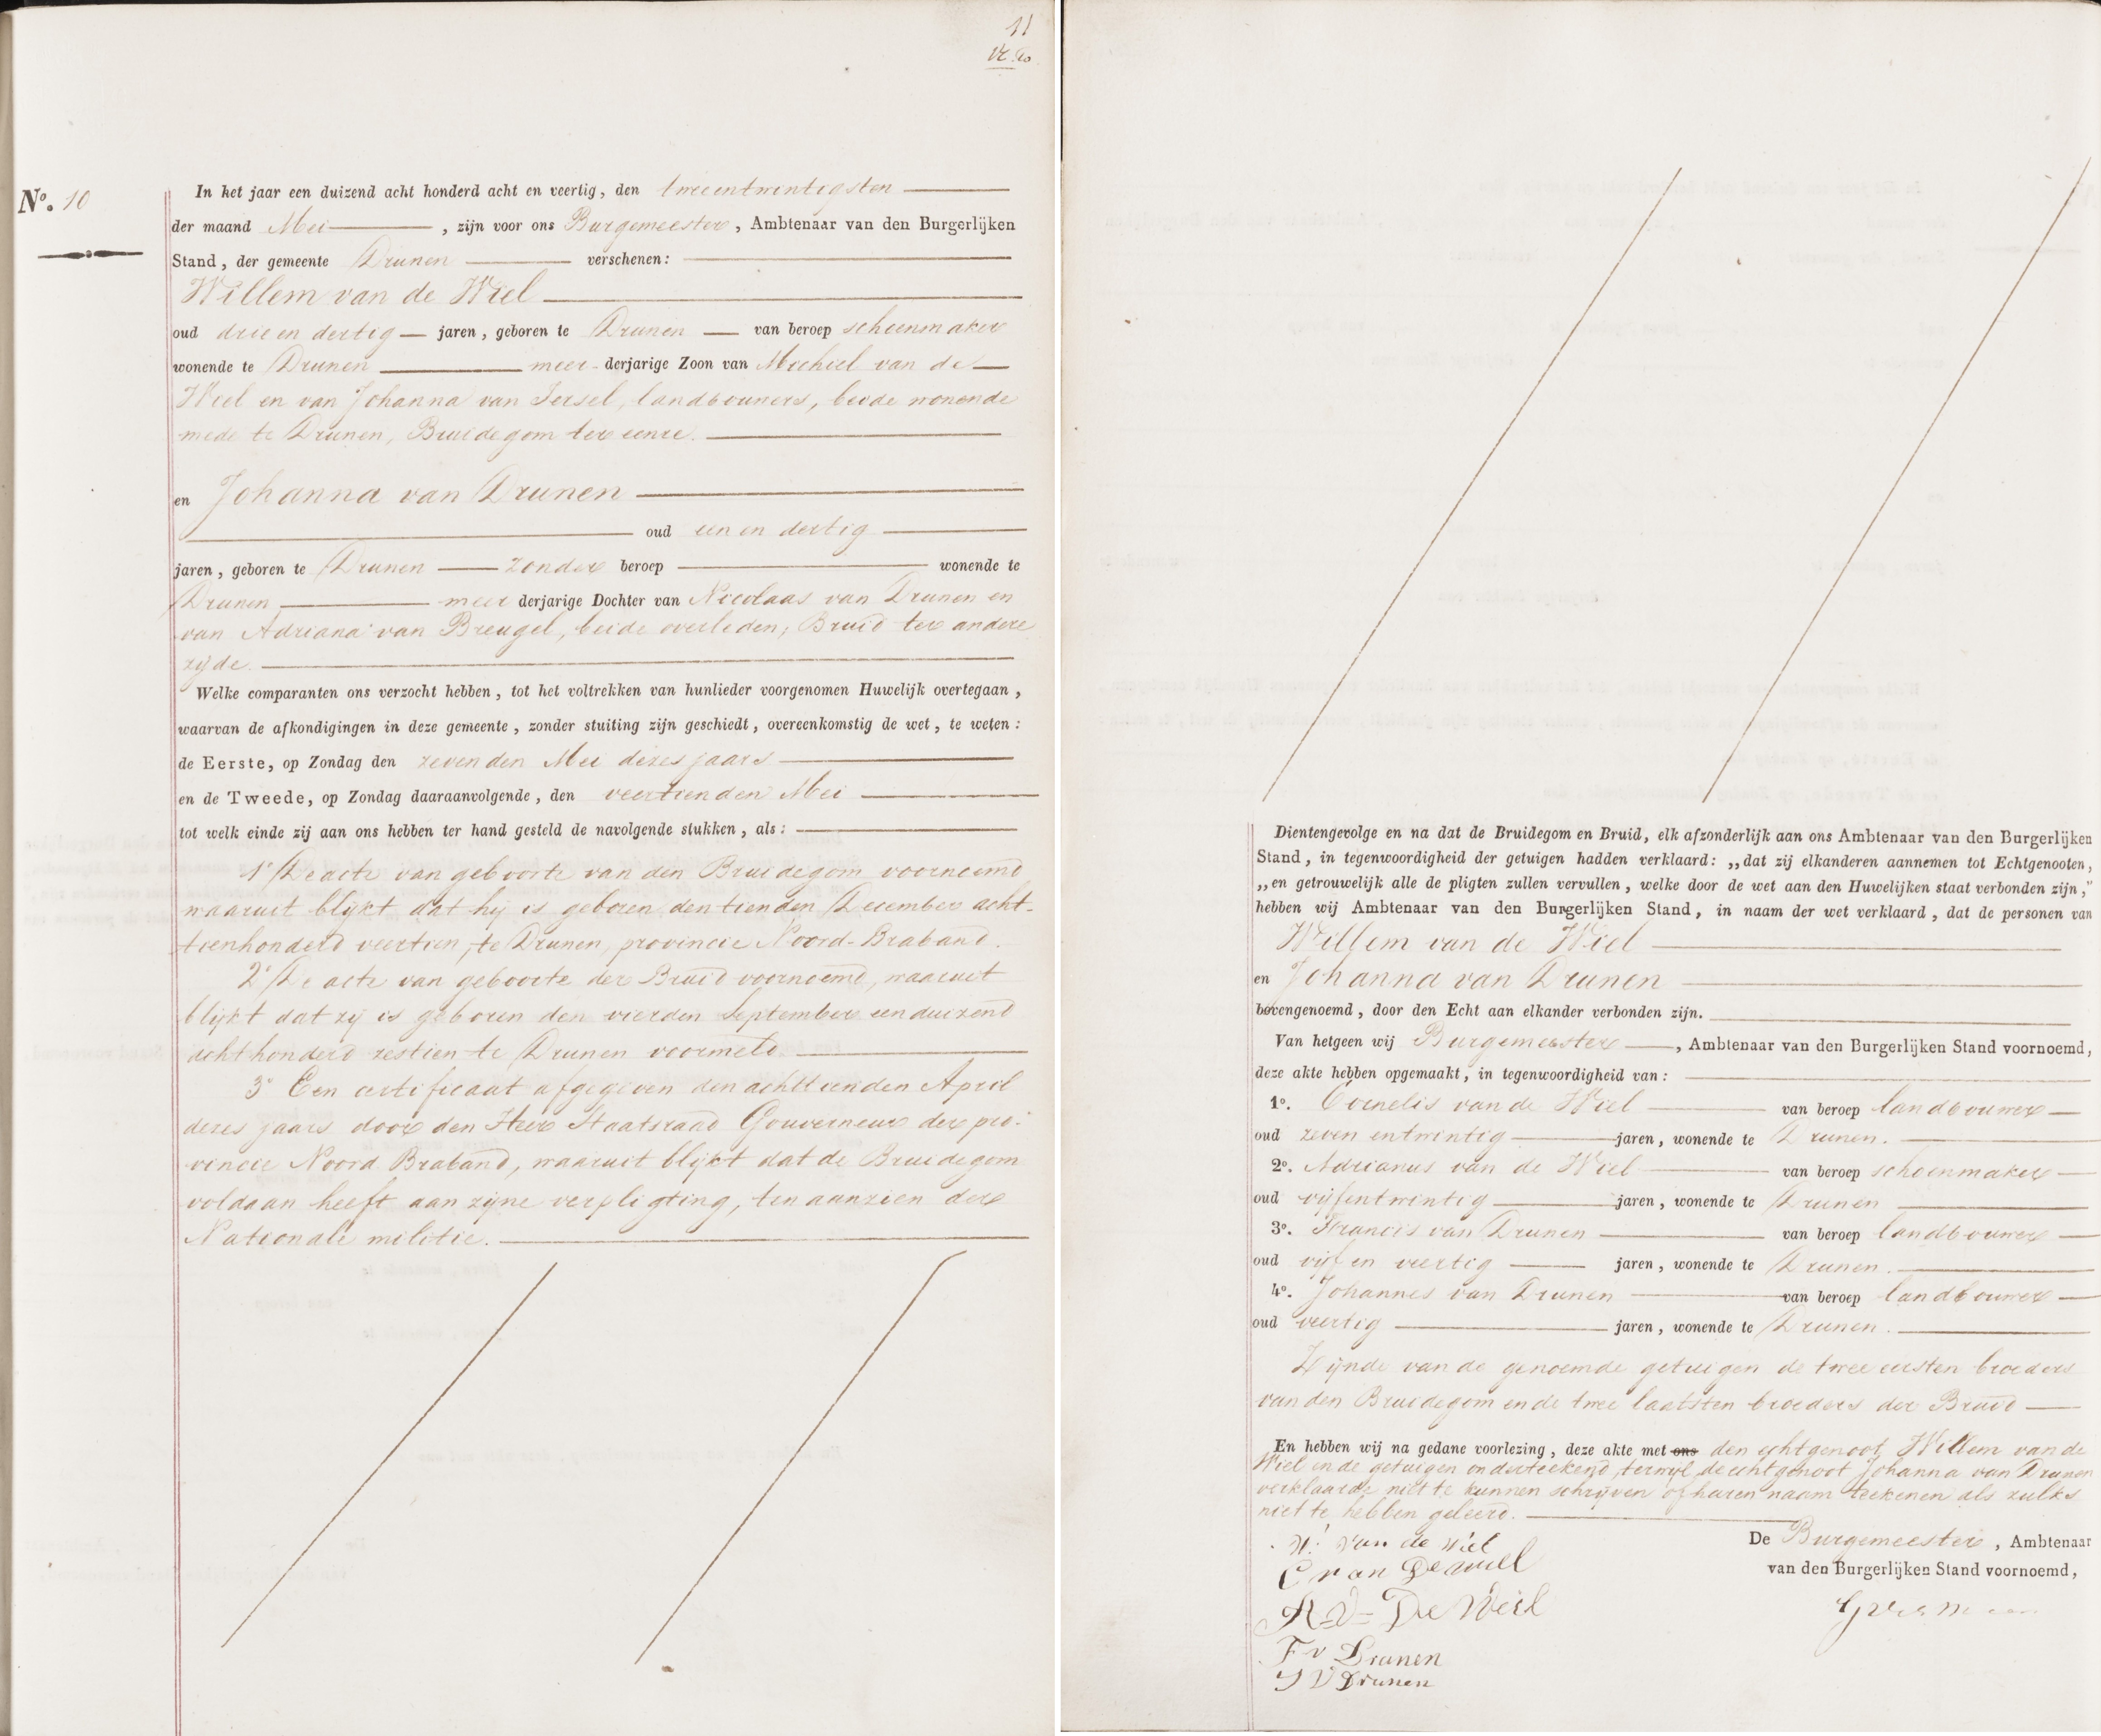 11
No. 10
In het jaar een duizend acht honderd acht en veertig, den tweeentwintigsten
der maand Mei, zijn voor ons Burgemeester, Ambtenaar van den Burgerlijken
Stand, der gemeente Drunen verschenen:
Willem van de Wiel
oud drie en dertig jaren, geboren te Drunen van beroep schoenmaker
wonende te Drunen meer-derjarige Zoon van Michiel van de
Wiel en van Johanna van Iersel, landbouwers, beide wonende
mede te Drunen, Bruidegom ter eenre.
en Johanna van Drunen
oud een en dertig
jaren, geboren te Drunen zonder beroep wonende te
Drunen meer derjarige Dochter van Nicolaas van Drunen en
van Adriana van Breugel, beide overleden; Bruid ter andere
zijde.
Welke comparanten ons verzocht hebben, tot het voltrekken van hunlieder voorgenomen Huwelijk overtegaan,
waarvan de afkondigingen in deze gemeente, zonder stuiting zijn geschiedt, overeenkomstig de wet, te weten:
de Eerste, op Zondag den zevenden Mei dezes jaars
en de Tweede, op Zondag daaraanvolgende, den veertienden Mei
tot welk einde zij aan ons hebben ter hand gesteld de navolgende stukken, als:
1° De acte van geboorte van den Bruidegom voornoemd
waaruit blijkt dat hij is geboren den tienden December acht-
tienhonderd veertien, te Drunen, provincie Noord-Braband.
2° De acte van geboorte der Bruid voornoemd, waaruit
blijkt dat zij is geboren den vierden September eenduizend
achthonderd zestien te Drunen voormeld.
3° Een certificaat afgegeven den achttienden April
dezes jaars door den Heer Staatsraad Gouverneur der pro-
vincie Noord Braband, waaruit blijkt dat de Bruidegom
voldaan heeft aan zijne verpligting, ten aanzien der
Nationale militie.
Dientengevolge en na dat de Bruidegom en Bruid, elk afzonderlijk aan ons Ambtenaar van den Burgerlijken
Stand, in tegenwoordigheid der getuigen hadden verklaard: „dat zij elkanderen aannemen tot Echtgenooten,
„en getrouwelijk alle de pligten zullen vervullen, welke door de wet aan den Huwelijken staat verbonden zijn,"
hebben wij Ambtenaar van den Burgerlijken Stand, in naam der wet verklaard, dat de personen van
Willem van de Wiel
en Johanna van Drunen
bovengenoemd, door den Echt aan elkander verbonden zijn.
Van hetgeen wij Burgemeester, Ambtenaar van den Burgerlijken Stand voornoemd,
deze akte hebben opgemaakt, in tegenwoordigheid van:
1°. Cornelis van de Wiel van beroep landbouwer
oud zeven entwintig jaren, wonende te Drunen.
2°. Adrianus van de Wiel van beroep schoenmaker
oud vijfentwintig jaren, wonende te Drunen
3°. Francis van Drunen van beroep landbouwer
oud vijf en veertig jaren, wonende te Drunen.
4°. Johannes van Drunen van beroep landbouwer
oud veertig jaren, wonende te Drunen.
Zijnde van de genoemde getuigen de twee eersten broeders
van den Bruidegom en de twee laatsten broeders der Bruid
En hebben wij na gedane voorlezing, deze akte met ons den echtgenoot Willem van de
Wiel en de getuigen onderteekend, terwijl de echtgenoot Johanna van Drunen
verklaarde niet te kunnen schrijven of haren naam teekenen als zulks
niet te hebben geleerd.
W. van de wiel
C van De wiel
A V De Weil
F v Drunen
J V Drunen
De Burgemeester, Ambtenaar
van den Burgerlijken Stand voornoemd,